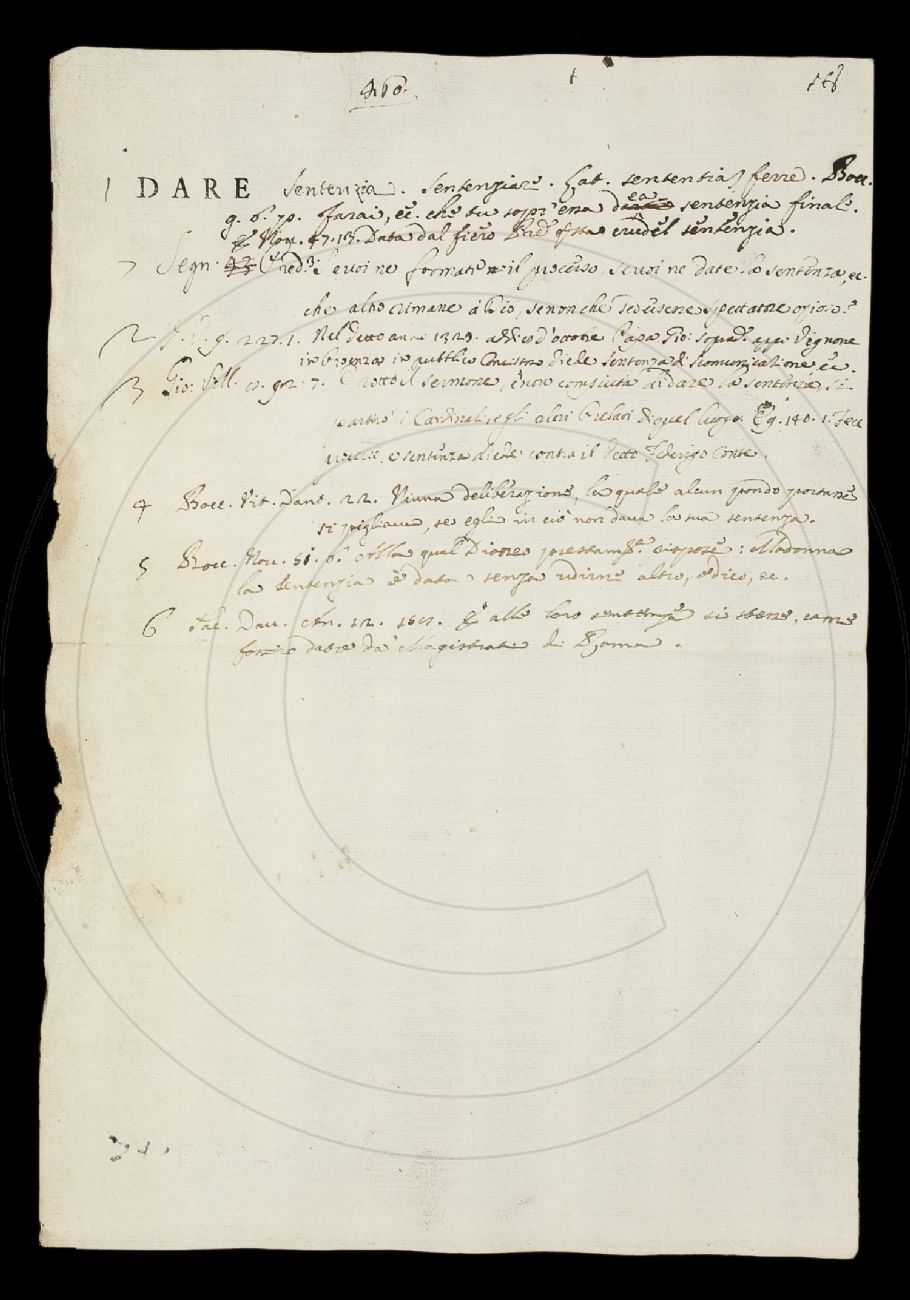 460.
1 DARE Sentenzia. Sentenziare. Lat. sententiā ferre. Bocc.
g. 6. p. Farai, ec. che tu sopr'essa dea sentenzia final.
E Nov. 47. 13. Data dal fiero Pad. qsta crudel sentenzia.
7 Segn. Cred. Se voi ne formate il processo, se voi ne date la sentenza, ec.
che altro rimane a Dio, se non che sedersene spettatore ozioso?
2 G. V. 9. 227. 1. Nel detto anno 1329. Papa Gio: appo Vignone
in presenza in pubblico diede sentenza di scomunicazione, ec.
3 Gio: Vill. 7. sermone, e non compiuta di dare la sentenza, si
partiro i Cardinali, e gli altri Prelati di quel luogo. E g. 140. 1. Fece
e sentenza diede contra il detto Federigo Conte.
4 Bocc. Vit. Dant. 22. Niuna deliberazione, la quale alcun pondo portasse
si pigliava, se egli in ciò non dava la sua sentenza.
5 Bocc. Nov. 51. 6. Alla qual Dioneo prestamte. rispose: Madonna
la sentenzia è data senza udirne altro, e dico, ec.
6 Tac. Dav. Ann. 12. E alle loro sentenze si stesse, come
fossero date da' Magistrati di Roma.